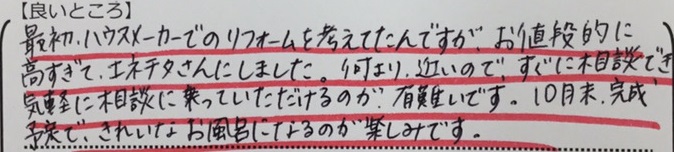 【良いところ】
最初、ハウスメーカーでのリフォームを考えてたんですが、お値段的に
高すぎて、エネチタさんにしました。何より、近いので、すぐに相談でき
気軽に相談に乗っていただけるのが、有難いです。10月末、完成
予定で、きれいなお風呂になるのが楽しみです。